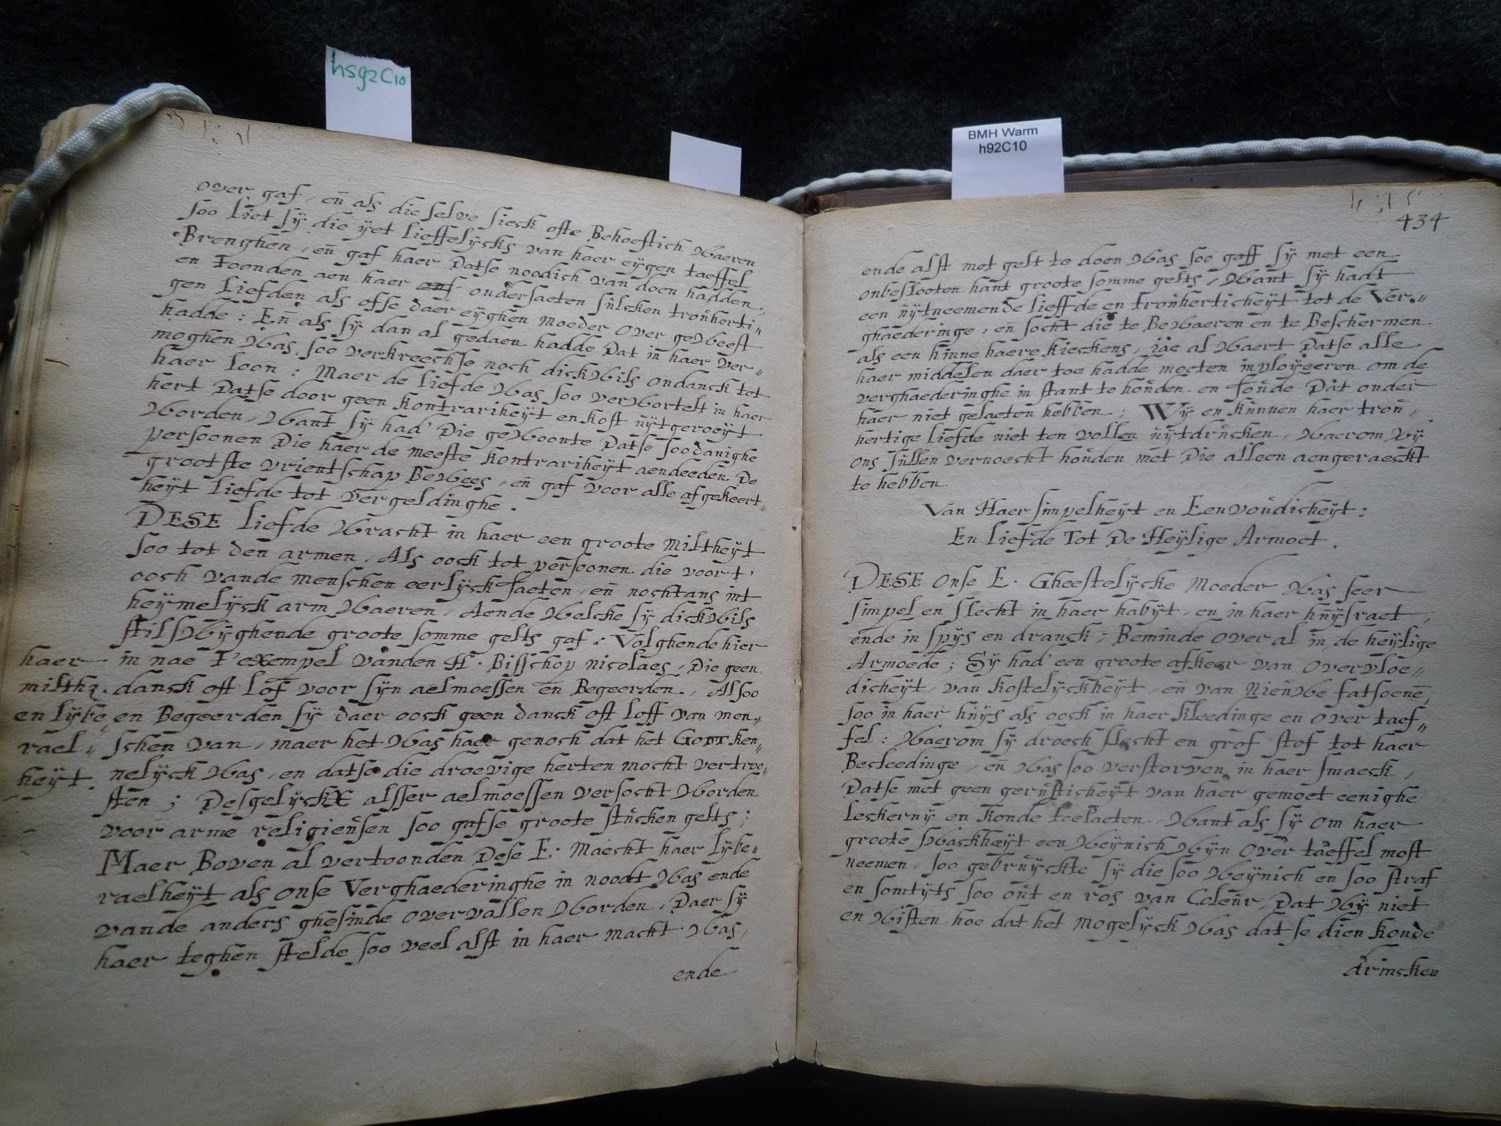 hsg2C10
BMH Warm
h92C10
over gaf, en̄ als die selve sieck ofte Behoeftich Waeren
soo liet sÿ die ÿet lieffelÿcks van haer eÿgen taeffel
Brenghen, en̄ gaf haer Datse noodich van doen hadden,
en Toonden aen haer ondersaeten sulcken trouherti-
gen Liefden als ofse daer eÿghen moeder over geWeest
hadde: En̄ als sÿ dan al gedaen hadde Dat in haer ver-
moghen Was, soo verkreechse noch dickWils ondanck tot
haer Loon: Maer de liefde Was soo verWortelt in haer
hert Datse door geen kontrariheÿt en kost uÿtgeroeÿt
Worden, Want sÿ had' Die geWoonte Datse soodanighe
persoonen Die haer de meeste kontrariheÿt aendeeden De
grootste vrientschap BeWees, en̄ gaf voor alle afgekeert-
heÿt liefde tot vergeldinghe.
DESE liefde Wracht in haer een groote miltheÿt
soo tot den armen, Als oock tot persoonen die voort'
oock vande menschen eerlÿck saeten, en̄ nochtans int
heÿmelÿck arm Waeren, Aende Welcke sÿ dickWils
stilsWÿghende groote somme gelts gaf: Volghende hier
in nae T'exempel vanden H. Bisschop nicolaes, Die geen
danck oft lof voor sÿn aelmoessen en̄ Begeerden, Alsoo
en Begeerden sÿ daer oock geen danck oft loff van men-
schen van, maer het Was haer genoch dat het Godt ken-
nelÿck Was, en datse die droevige herten mocht vertroo-
sten; Desgelÿckx alsser aelmoessen versocht Worden
voor arme religieusen soo gafse groote stucken gelts;
Maer Boven al vertoonden Dese E. Maecht haer lÿbe-
raelheÿt als onse Verghaederinghe in noodt Was ende
vande anders ghesinde overvallen Worden, Daer sÿ
haer teghen stelde soo veel alst in haer macht Was,
ende
haer
milthz.
en lÿbe
rael-
heÿt.
434
ende alst met gelt te doen Was soo gaff sÿ met een
onbeslooten hant groote somme gelts, Want sÿ hadt
een uÿtneemende lieffde en trouherticheÿt tot de Ver-
ghaederinge, en̄ socht die te BeWaeren en te Beschermen
als een hinne haere kieckens, jae al Waert Datse alle
haer middelen daer toe hadde moeten inploÿeeren om de
verghaederinghe in stant te houden, en soude Dat onder
haer niet gelaeten hebben; Wÿ en kunnen haer trou-
hertige liefde niet ten vollen uÿtdrucken, Waerom Wÿ
ons sullen vernoecht houden met Die alleen aengeraeckt
te hebben.
Van Haer simpelheÿt en Eenvoudicheÿt:
En liefde Tot De Heÿlige Armoet.
DESE onse E. Gheestelÿcke Moeder Was seer
simpel en slecht in haer habÿt, en in haer huÿsraet,
ende in spÿs en dranck; Beminde over al in de heÿlige
Armoede; Sÿ had' een groote afkeer van overvloe-
dicheÿt, van kostelÿckheÿt, en̄ van NieuWe fatsoene,
soo in haer huÿs als oock in haer kleedinge en over taef-
fel: Waerom sÿ droech slecht en grof stof tot haer
Becleedinge, en̄ Was soo verstorven in haer smaeck,
Datse met geen gerusticheÿt van haer gemoet eenighe
leckernÿ en konde toelaeten. Want als sÿ om haer
groote sWackheÿt een Weÿnich Wÿn over taeffel most
neemen, soo gebruÿckte sÿ die soo Weÿnich en soo straf
en somtÿts soo out en ros van Coleur, Dat Wÿ niet
en Wisten hoe dat het mogelÿck Was dat se dien konde
drincken